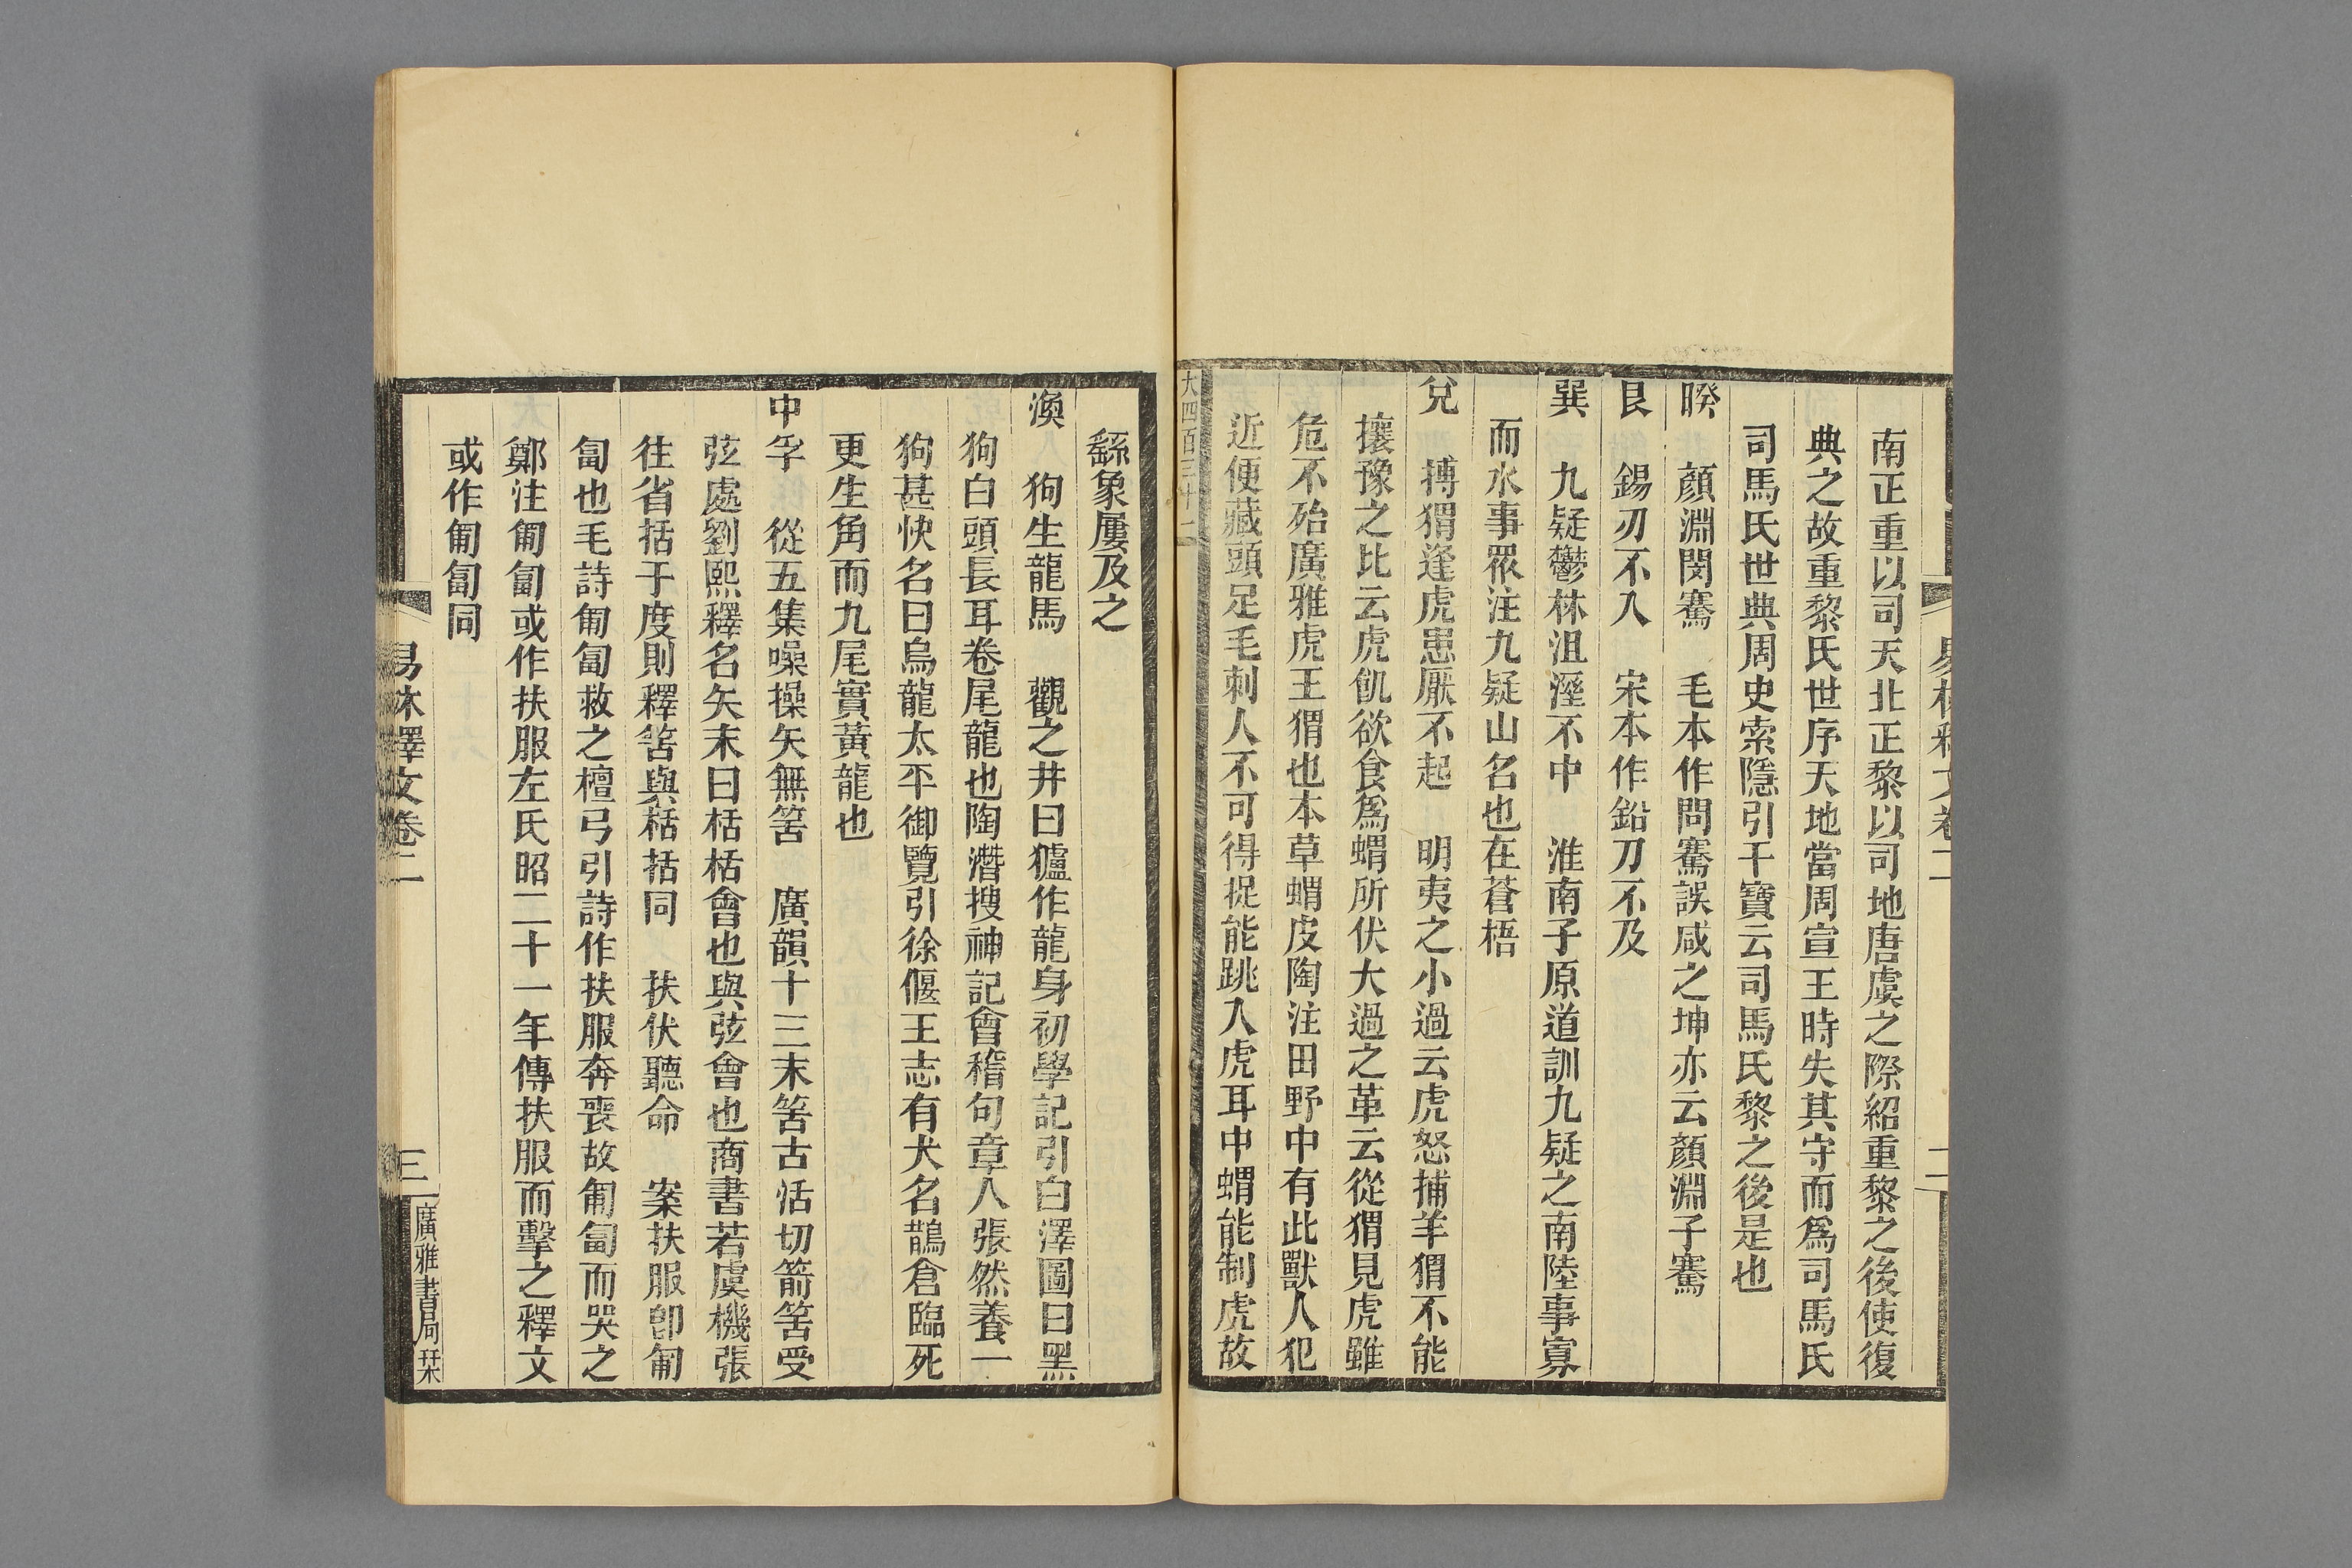 南正重以司天北正黎以司地唐虞之際紹重黎之後使復
典之故重黎氏世序天地當周宣王時失其守而爲司馬氏
司馬氏世典周史索隱引干寶云司馬氏黎之後是也
睽　顏淵閔騫　毛本作問騫誤咸之坤亦云顏淵子騫
艮　錫刃不入　宋本作鉛刀不及
巽　九疑鬱林沮溼不中　淮南子原道訓九疑之南陸事寡
而水事眾注九疑山名也在蒼梧
兌　搏猬逢虎患厭不起　明夷之小過云虎怒捕羊猬不能
攘豫之比云虎飢欲食爲蝟所伏大過之革云從猬見虎雖
危不殆廣雅虎王猬也本草蝟皮陶注田野中有此獸人犯
近便藏頭足毛刺人不可得捉能跳入虎耳中蝟能制虎故
大四百三十二
易林釋文卷二
二
繇象屢及之
渙　狗生龍馬　觀之井曰獹作龍身初學記引白澤圖曰黑
狗白頭長耳卷尾龍也陶潛搜神記會稽句章人張然養一
狗甚快名曰烏龍太平御覽引徐偃王志有犬名鵲倉臨死
更生角而九尾實黃龍也
中孚　從五集噪操矢無筈　廣韻十三末筈古活切箭筈受
弦處劉熙釋名矢末曰栝栝會也與弦會也商書若虞機張
往省括于度則釋筈與栝括同　扶伏聽命　案扶服卽匍
匐也毛詩匍匐救之檀弓引詩作扶服奔喪故匍匐而哭之
鄭注匍匐或作扶服左氏昭二十一年傳扶服而擊之釋文
或作匍匐同
易林釋文卷二
三
廣雅書局栞